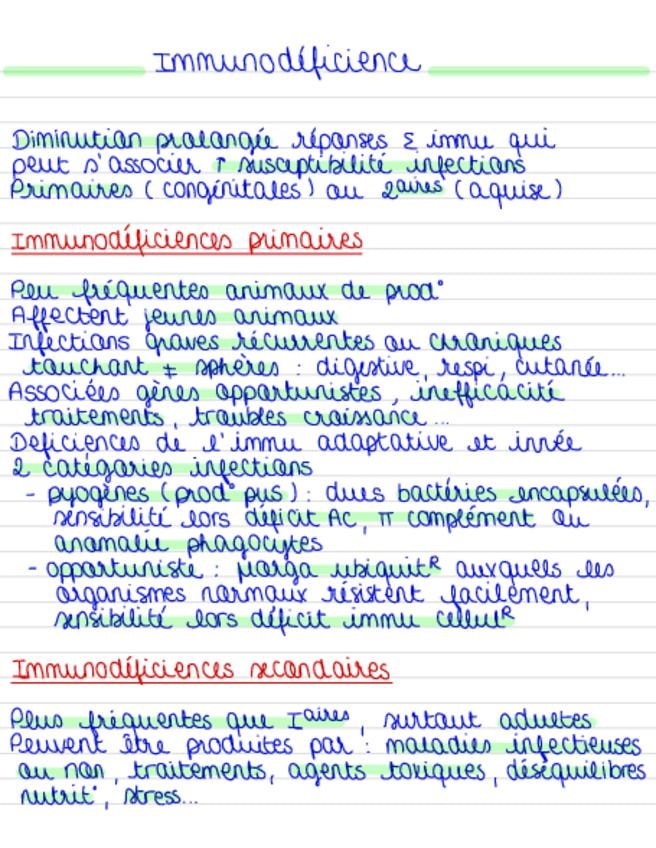 Immunodéficience
Diminution prolongée réponses Σ immu qui
peut s'associer ↑ susceptibilité infections
Primaires (congénitales) ou 2aires (aquise)
Immunodéficiences primaires
Peu fréquentes animaux de prod°
Affectent jeunes animaux
Infections graves récurrentes ou chroniques
touchant ≠ sphères : digestive, respi, cutanée...
Associées gènes opportunistes, inefficacité
traitements, troubles croissance...
Déficiences de l'immu adaptative et innée
2 catégories infections
- pyogènes (prod° pus) : dues bactéries encapsulées,
sensibilité lors déficit Ac, π complément ou
anomalie phagocytes
- opportuniste : µorga ubiquitR auxquels les
organismes normaux résistent facilement,
sensibilité lors déficit immu cellulR
Immunodéficiences secondaires
Plus fréquentes que Iaires, surtout adultes
Peuvent être produites par : maladies infectieuses
ou non, traitements, agents toxiques, déséquilibres
nutrit°, stress...